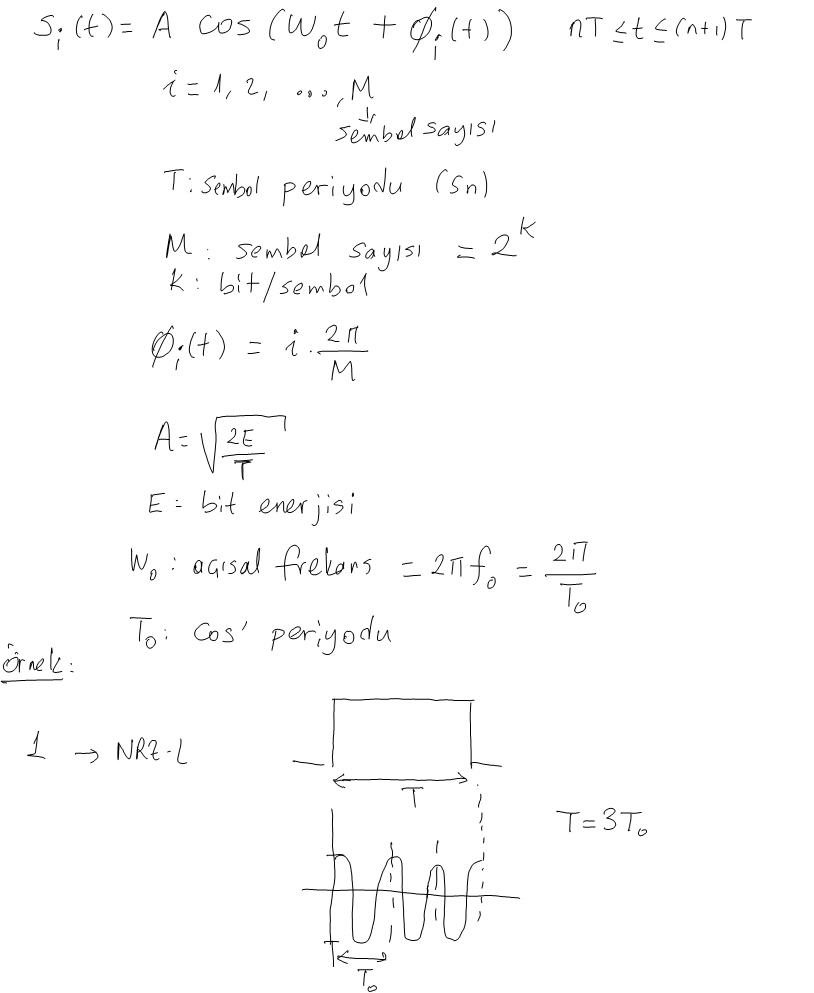 Sᵢ(t) = A cos(W₀t + Øᵢ(t)) nT ≤ t ≤ (n+1)T
i = 1, 2, ..., M
sembol sayısı
T: sembol periyodu (sn)
M: sembol sayısı = 2^k
k: bit/sembol
Øᵢ(t) = i . 2π/M
A = √(2E/T)
E = bit enerjisi
W₀ : açısal frekans = 2πf₀ = 2π/T₀
T₀: cos' periyodu
örnek:
1 → NRZ-L
T
T = 3T₀
T₀